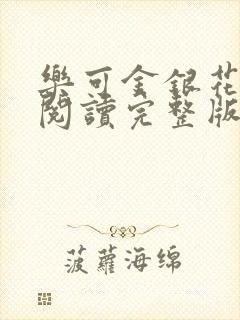 樂可金銀花
閱讀完整版
菠蘿海绵